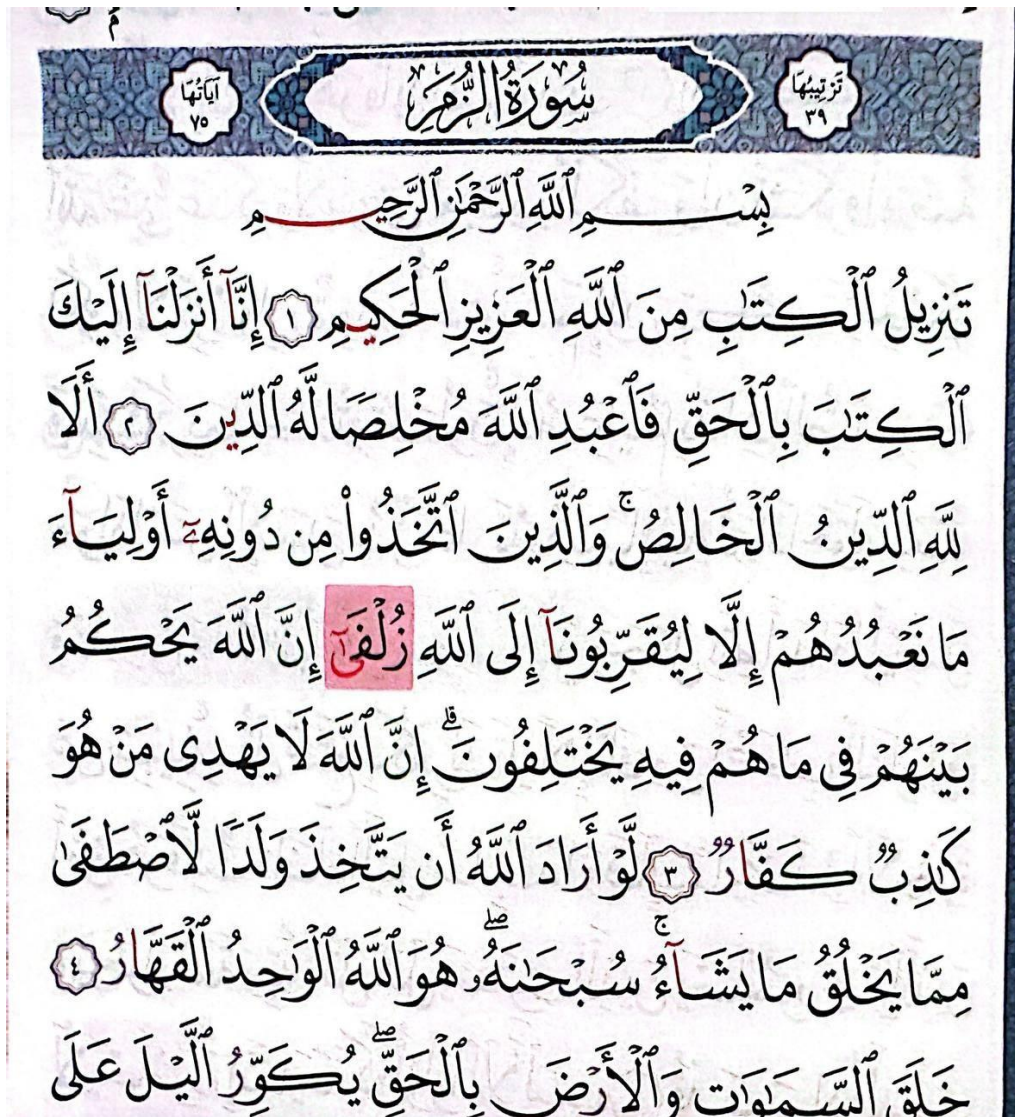 تَرْتِيبُهَا ٣٩ سُورَةُ الزُّمَرِ آيَاتُهَا ٧٥
بِسْمِ ٱللَّهِ ٱلرَّحْمَٰنِ ٱلرَّحِيمِ
تَنزِيلُ ٱلْكِتَٰبِ مِنَ ٱللَّهِ ٱلْعَزِيزِ ٱلْحَكِيمِ ١ إِنَّآ أَنزَلْنَآ إِلَيْكَ
ٱلْكِتَٰبَ بِٱلْحَقِّ فَٱعْبُدِ ٱللَّهَ مُخْلِصًا لَّهُ ٱلدِّينَ ٢ أَلَا
لِلَّهِ ٱلدِّينُ ٱلْخَالِصُ ۚ وَٱلَّذِينَ ٱتَّخَذُوا۟ مِن دُونِهِۦٓ أَوْلِيَآءَ
مَا نَعْبُدُهُمْ إِلَّا لِيُقَرِّبُونَآ إِلَى ٱللَّهِ زُلْفَىٰٓ إِنَّ ٱللَّهَ يَحْكُمُ
بَيْنَهُمْ فِى مَا هُمْ فِيهِ يَخْتَلِفُونَ ۗ إِنَّ ٱللَّهَ لَا يَهْدِى مَنْ هُوَ
كَٰذِبٌ كَفَّارٌ ٣ لَّوْ أَرَادَ ٱللَّهُ أَن يَتَّخِذَ وَلَدًا لَّٱصْطَفَىٰ
مِمَّا يَخْلُقُ مَا يَشَآءُ ۚ سُبْحَٰنَهُۥ ۖ هُوَ ٱللَّهُ ٱلْوَٰحِدُ ٱلْقَهَّارُ ٤
خَلَقَ ٱلسَّمَٰوَٰتِ وَٱلْأَرْضَ بِٱلْحَقِّ ۖ يُكَوِّرُ ٱلَّيْلَ عَلَى